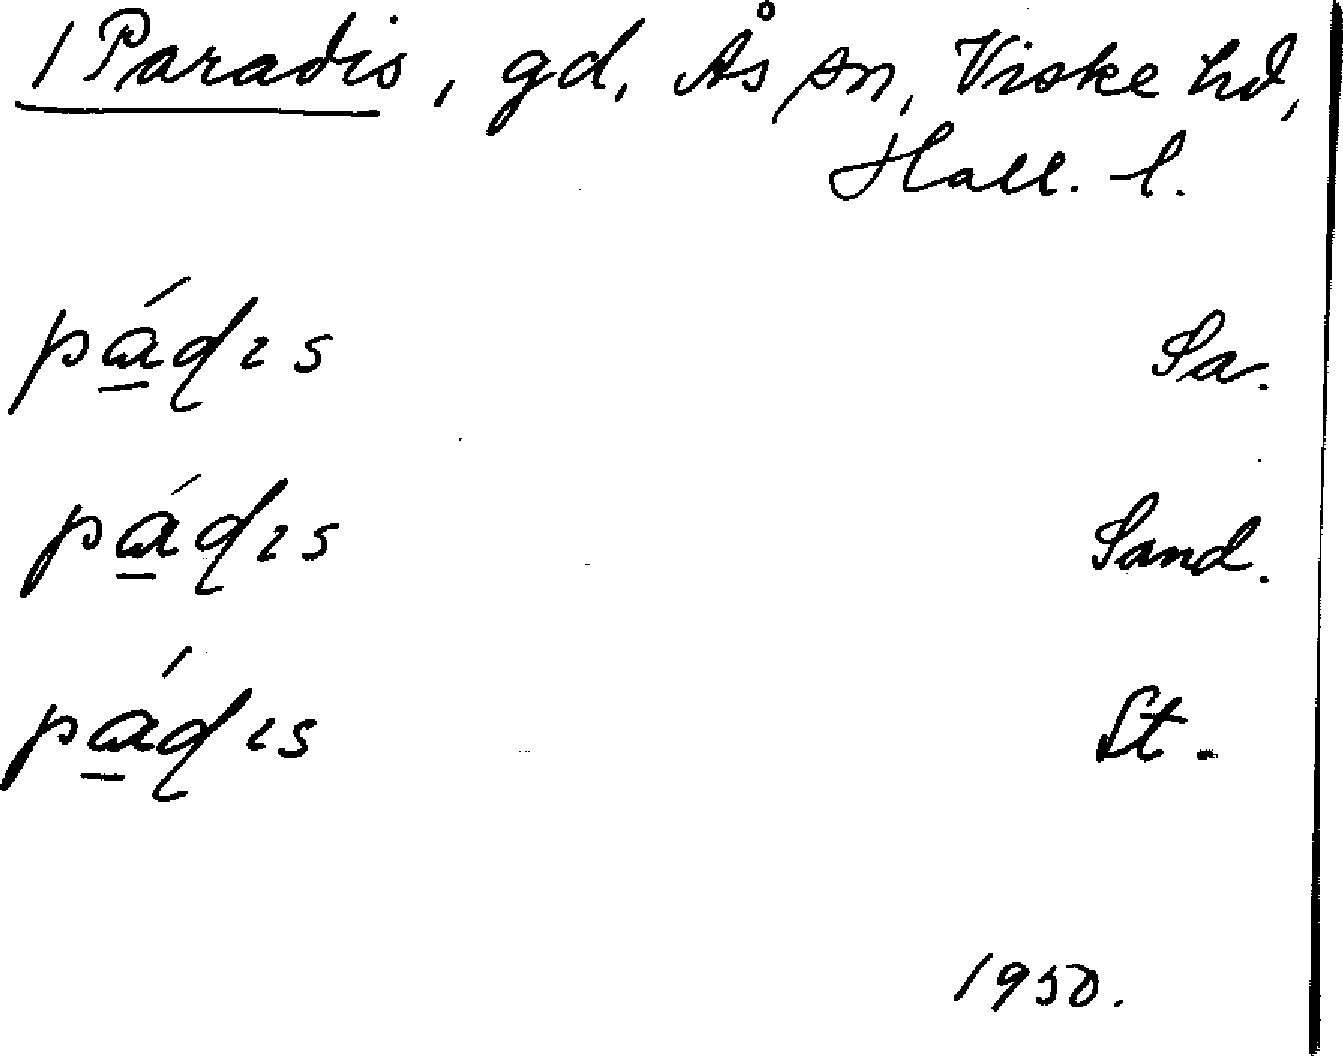 1 Paradis, gd, Ås sn, Viske hd,
Hall. l.
pá̱ɖɩs Sa.
pá̱ɖɩs Sand.
pá̱ɖɩs St.
1950.